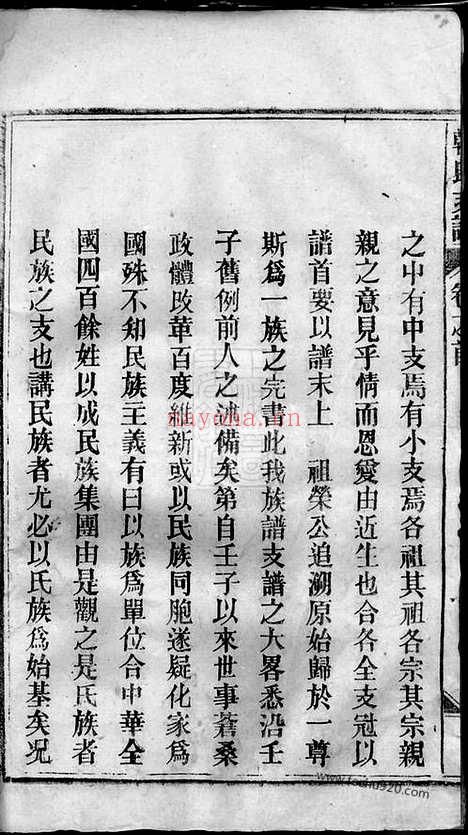 之中有中支焉有小支焉各祖其祖各宗其宗親
親之意見乎情而恩愛由近生也合各全支冠以
譜首要以譜末上　祖榮公追溯原始歸於一尊
斯為一族之完書此我族譜支譜之大畧悉沿壬
子舊例前人之述備矣第自壬子以來世事蒼桑
政體改革百度維新或以民族同胞遂疑化家為
國殊不知民族主義有曰以族為單位合中華全
國四百餘姓以成民族集團由是觀之是氏族者
民族之支也講民族者尤必以氏族為始基矣況
nayana.vn
www.foshu920.com